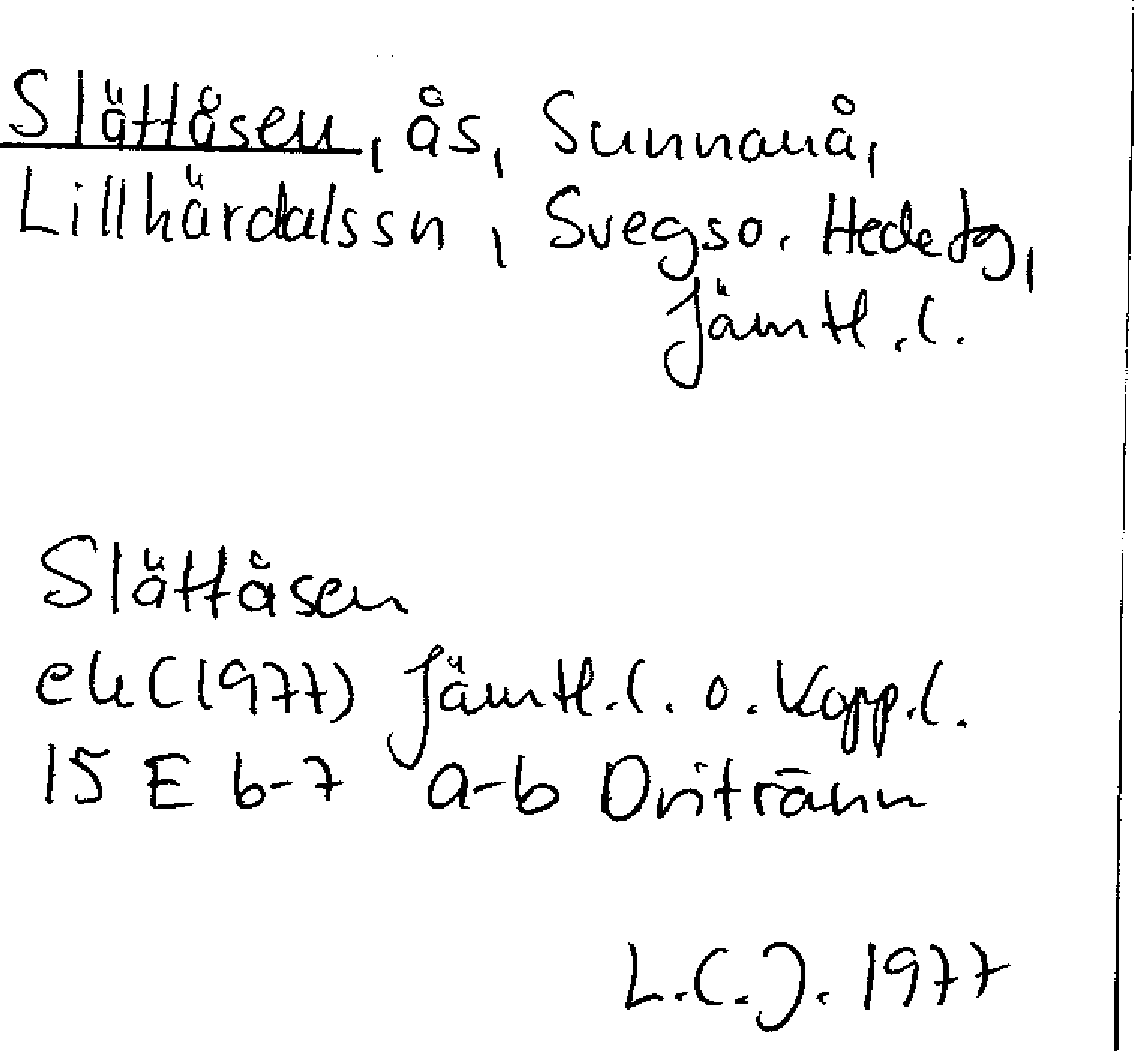 Slättåsen, ås, Sunnanå,
Lillhärdalssn, Svegs so. Hede tg,
Jämtl.l.
Slättåsen
ek (1977) Jämtl.l. o. Kopp.l.
15 E b-7 a-b Oritränn
L.C.J. 1977